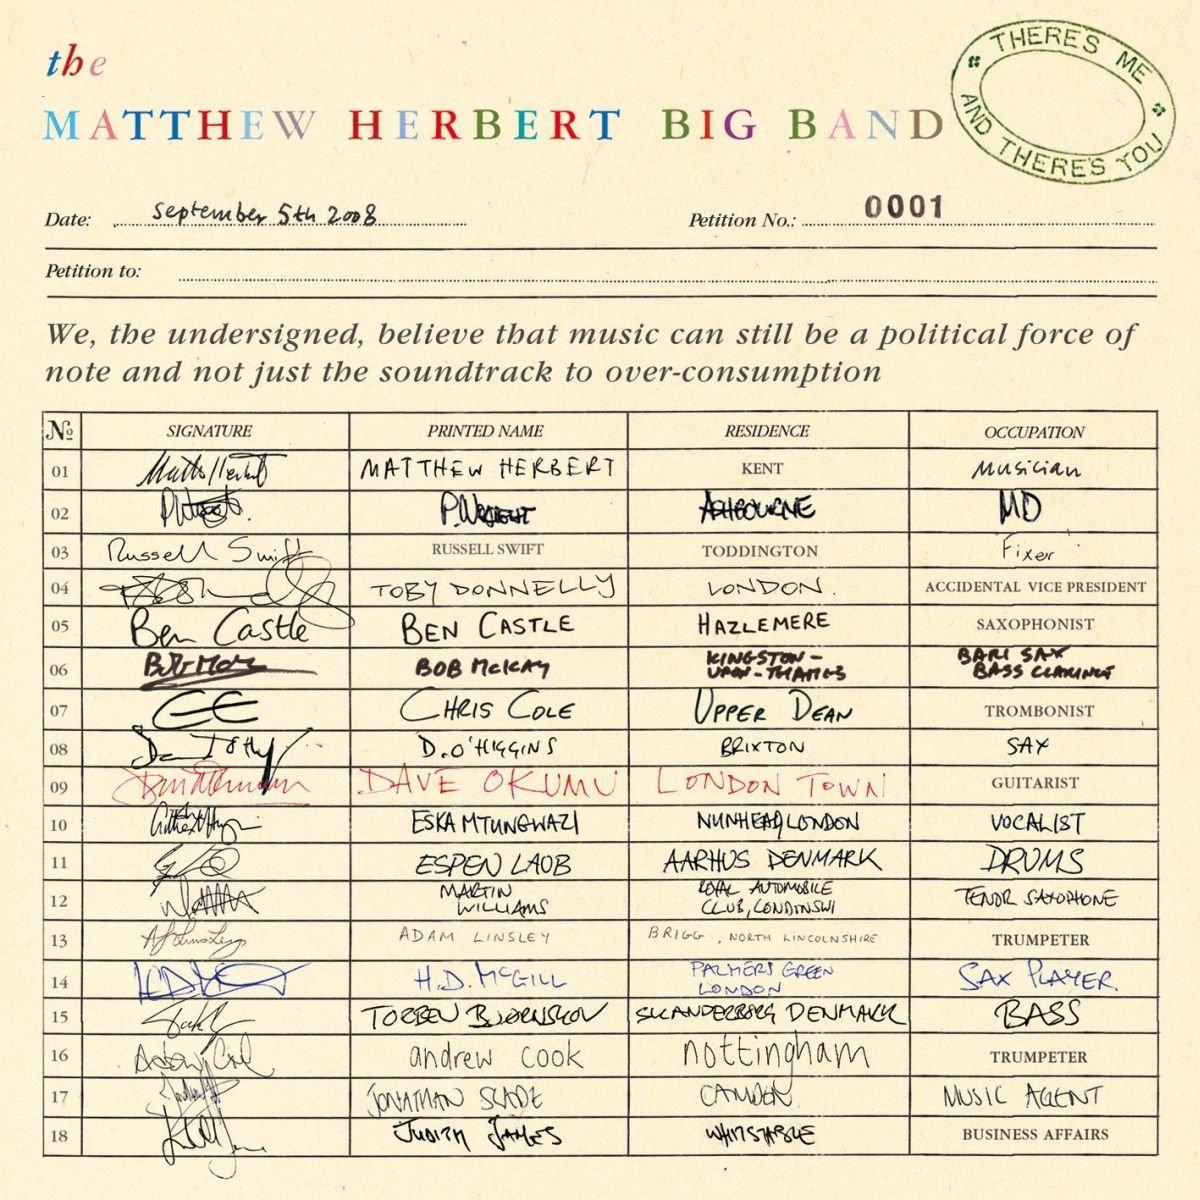 the
MATTHEW HERBERT BIG BAND
THERE'S ME AND THERE'S YOU
Date: September 5th 2008 Petition No.: 0001
Petition to:
We, the undersigned, believe that music can still be a political force of
note and not just the soundtrack to over-consumption
No SIGNATURE PRINTED NAME RESIDENCE OCCUPATION
01 MATTHEW HERBERT KENT Musician
02 P. WRIGHT ASHBOURNE MD
03 Russell Swift RUSSELL SWIFT TODDINGTON Fixer
04 TOBY DONNELLY LONDON. ACCIDENTAL VICE PRESIDENT
05 Ben Castle BEN CASTLE HAZLEMERE SAXOPHONIST
06 BOB MCKAY KINGSTON-
UPON-THAMES BARI SAX
BASS CLARINET
07 CHRIS COLE UPPER DEAN TROMBONIST
08 D. O'HIGGINS BRIXTON SAX
09 DAVE OKUMU LONDON TOWN GUITARIST
10 ESKA MTUNGWAZI NUNHEAD, LONDON VOCALIST
11 ESPEN LAUB AARHUS DENMARK DRUMS
12 MARTIN
WILLIAMS ROYAL AUTOMOBILE
CLUB, LONDON SW1 TENOR SAXOPHONE
13 ADAM LINSLEY BRIGG, NORTH LINCOLNSHIRE TRUMPETER
14 H.D. McGILL PALMERS GREEN
LONDON SAX PLAYER.
15 TORBEN BJØRNSKOV SKANDERBORG DENMARK BASS
16 andrew cook nottingham TRUMPETER
17 JONATHAN SLADE CAMDEN MUSIC AGENT
18 JUDITH JAMES WHITSTABLE BUSINESS AFFAIRS